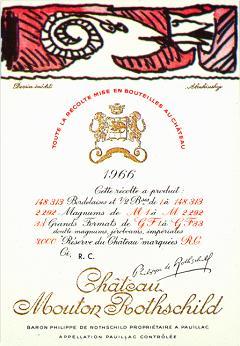 Dessin inédit Alechinsky
TOUTE LA RÉCOLTE MISE EN BOUTEILLES AU CHÂTEAU
1966
Cette récolte a produit:
148.313 Bordelaises et 1/2 Bses de 1 à 148.313
2.292 Magnums de M 1 à M 2.292
33 Grands Formats de G F 1 à G F 33
double magnums, jeroboams, impériales
3000 "Réserve du Château" marquées R.C.
Ci, R. C.
Philippe de Rothschild
Château
Mouton Rothschild
BARON PHILIPPE DE ROTHSCHILD PROPRIÉTAIRE A PAUILLAC
APPELLATION PAUILLAC CONTRÔLÉE